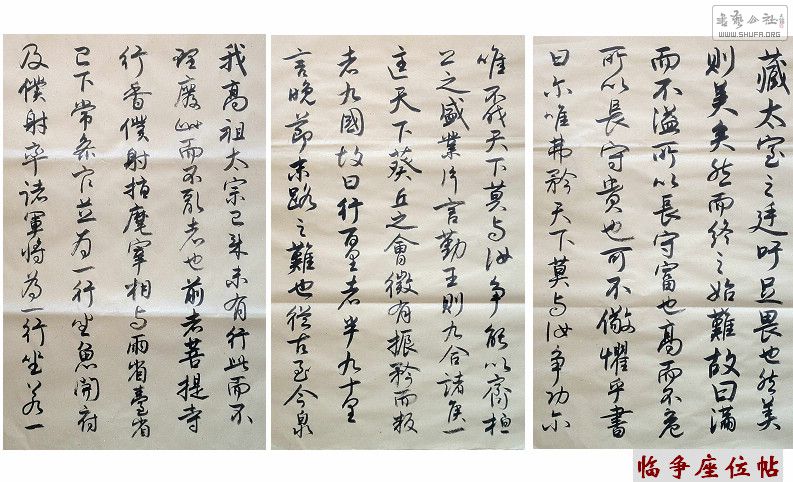 書藝公社
WWW.SHUFA.ORG
藏太室之廷吁足畏也然美
則美矣然而终之始難故曰滿
而不溢所以長守富也高而不危
所以長守貴也可不儆懼乎書
曰尔唯弗矜天下莫与汝争功尔
唯不伐天下莫与汝争能以齊桓
公之盛業片言勤王則九合諸侯一
匡天下葵丘之會微有振矜而叛
者九國故曰行百里者半九十里
言晚節末路之難也從古至今泉
我高祖太宗已來未有行此而不
理廢此而不亂者也前者菩提寺
行香僕射指麾宰相与兩省臺省
已下常参官並为一行坐魚開府
及僕射率諸軍將为一行坐若一
临争座位帖